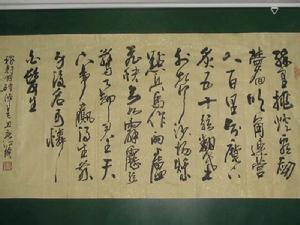 醉里挑燈看劍
夢回吹角連營
八百里分麾下
炙五十弦翻塞
外聲沙場秋
點兵馬作的盧
飛快弓如霹靂弦
驚了却君王天
下事贏得生前
身後名可憐
白髮生